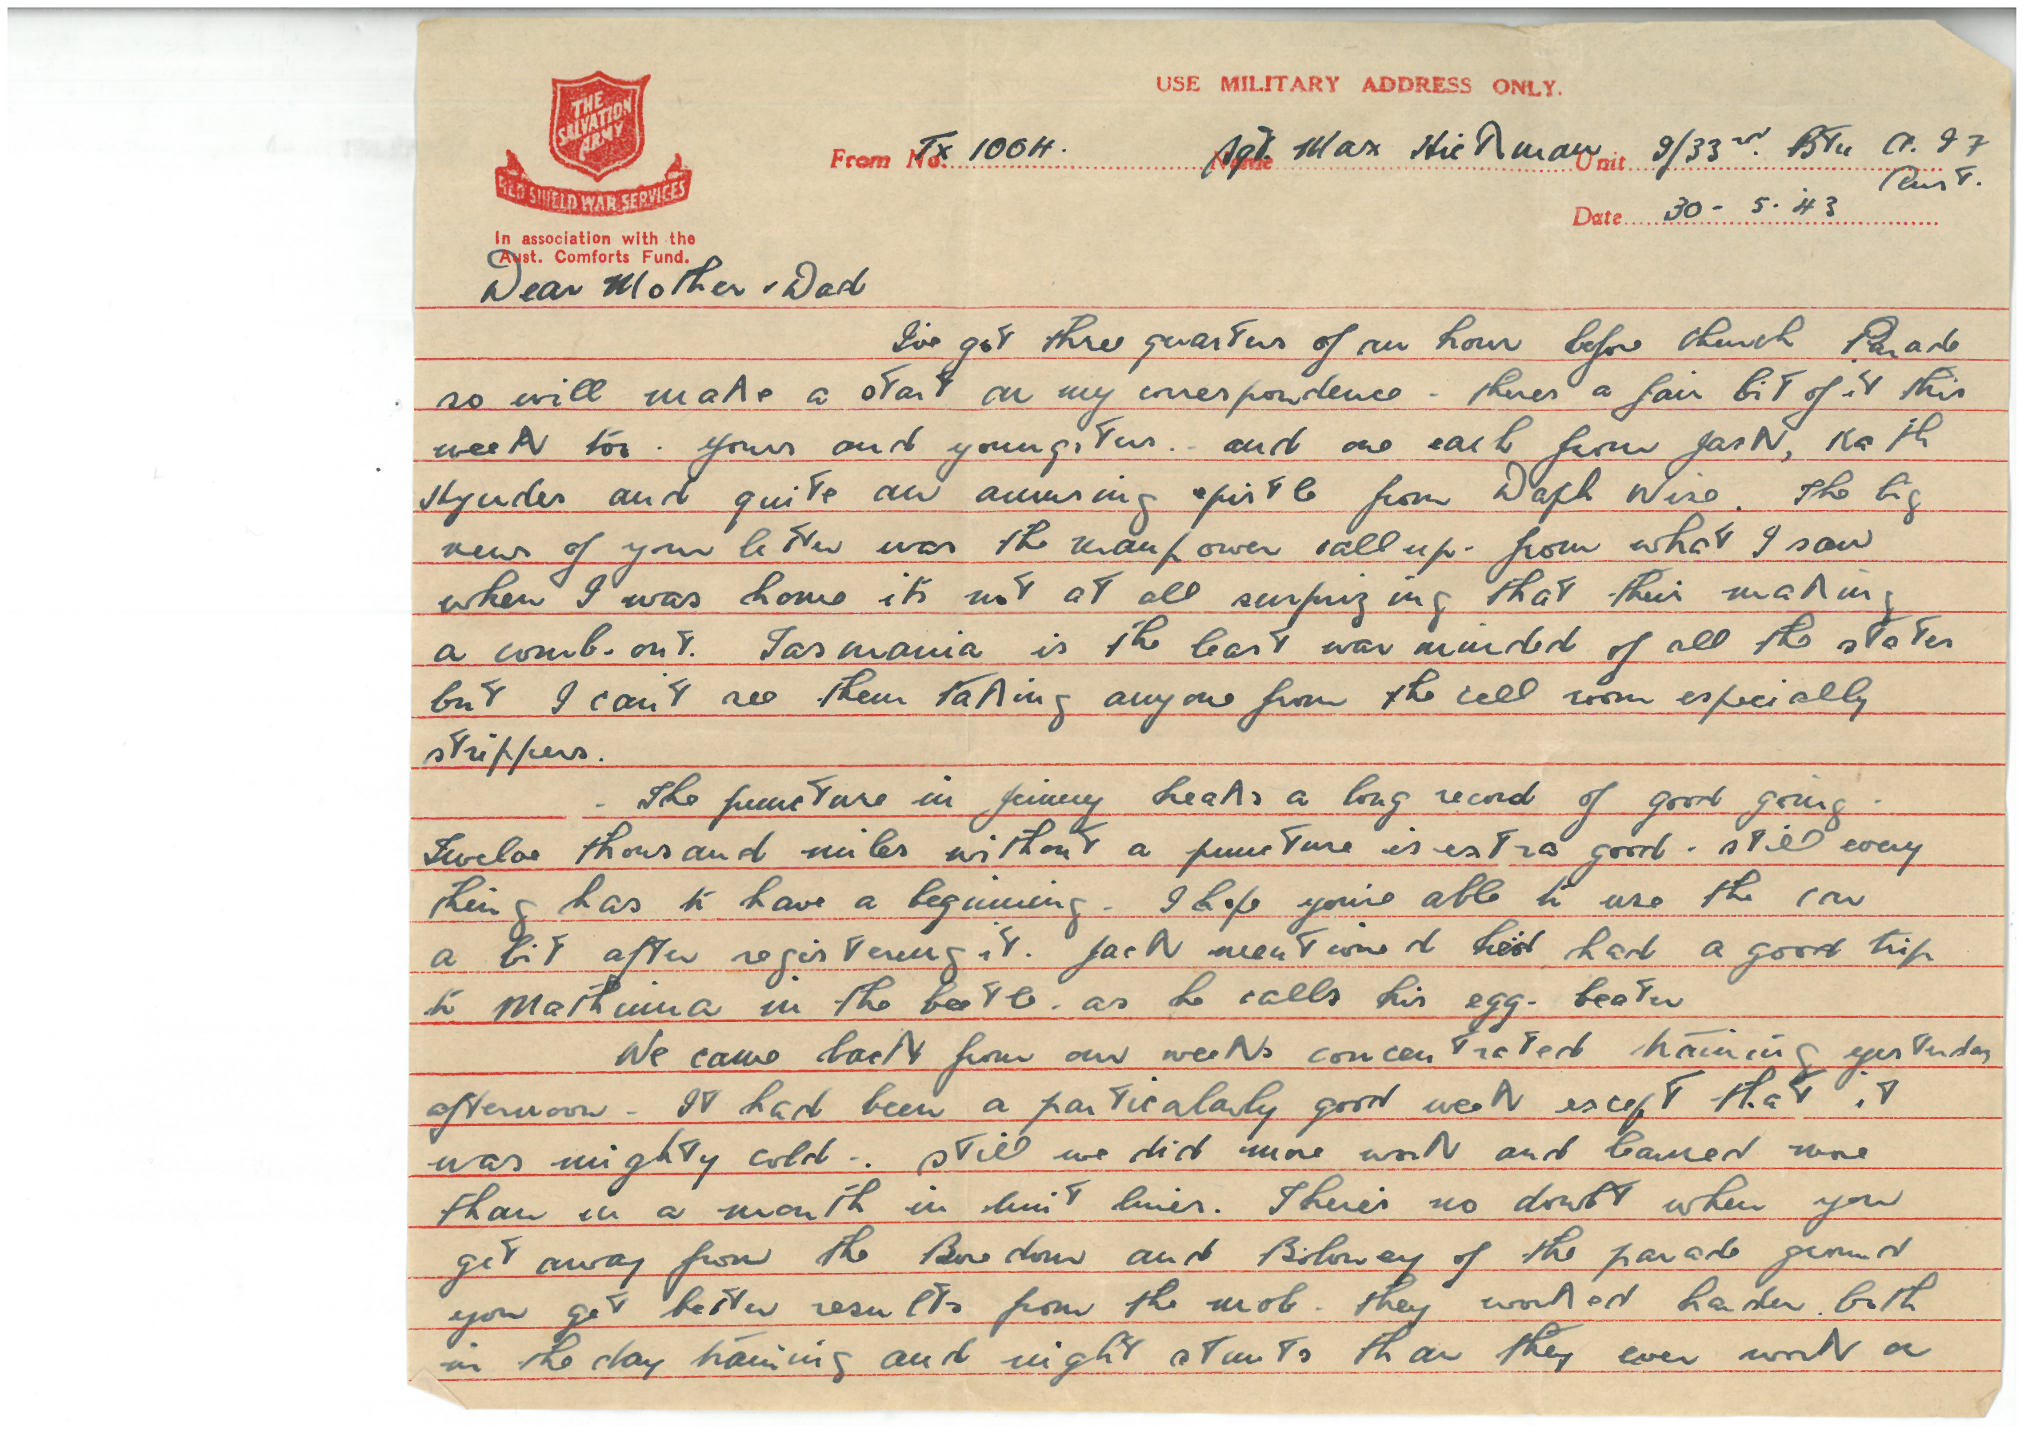 USE MILITARY ADDRESS ONLY.
THE
SALVATION
ARMY
RED SHIELD WAR SERVICES
In association with the
Aust. Comforts Fund.
From No. Tx 1004. Name Sgt. Max Hickman Unit 2/33rd. Btn A.I.F
Aust.
Date 30 - 5. 43
Dear Mother & Dad
I've got three quarters of an hour before church Parade
so will make a start on my correspondence - theres a fair bit of it this
week too. yours and youngsters.. and one each from Jack, Kath
and quite an amusing epistle from Daph Wise. The big
news of your letter was the manpower call up. from what I saw
when I was home its not at all surprizing that their making
a comb-out. Tasmania is the least war minded of all the states
but I can't see them taking anyone from the cell room especially
strippers.
- The puncture in jimmy breaks a long record of good going -
Twelve thousand miles without a puncture is extra good - still every
thing has to have a beginning - I hope you're able to use the car
a bit after registering it. Jack mentioned he'd had a good trip
to Mathinna in the beetle - as he calls his egg-beater
We came back from our weeks concentrated training yesterday
afternoon - It had been a particularly good week except that it
was mighty cold -. still we did more work and learned more
than in a month in unit lines. There's no doubt when you
get away from the Boredom and of the parade ground
you get better results from the mob. they worked harder both
in the day training and night stunts than they ever work on